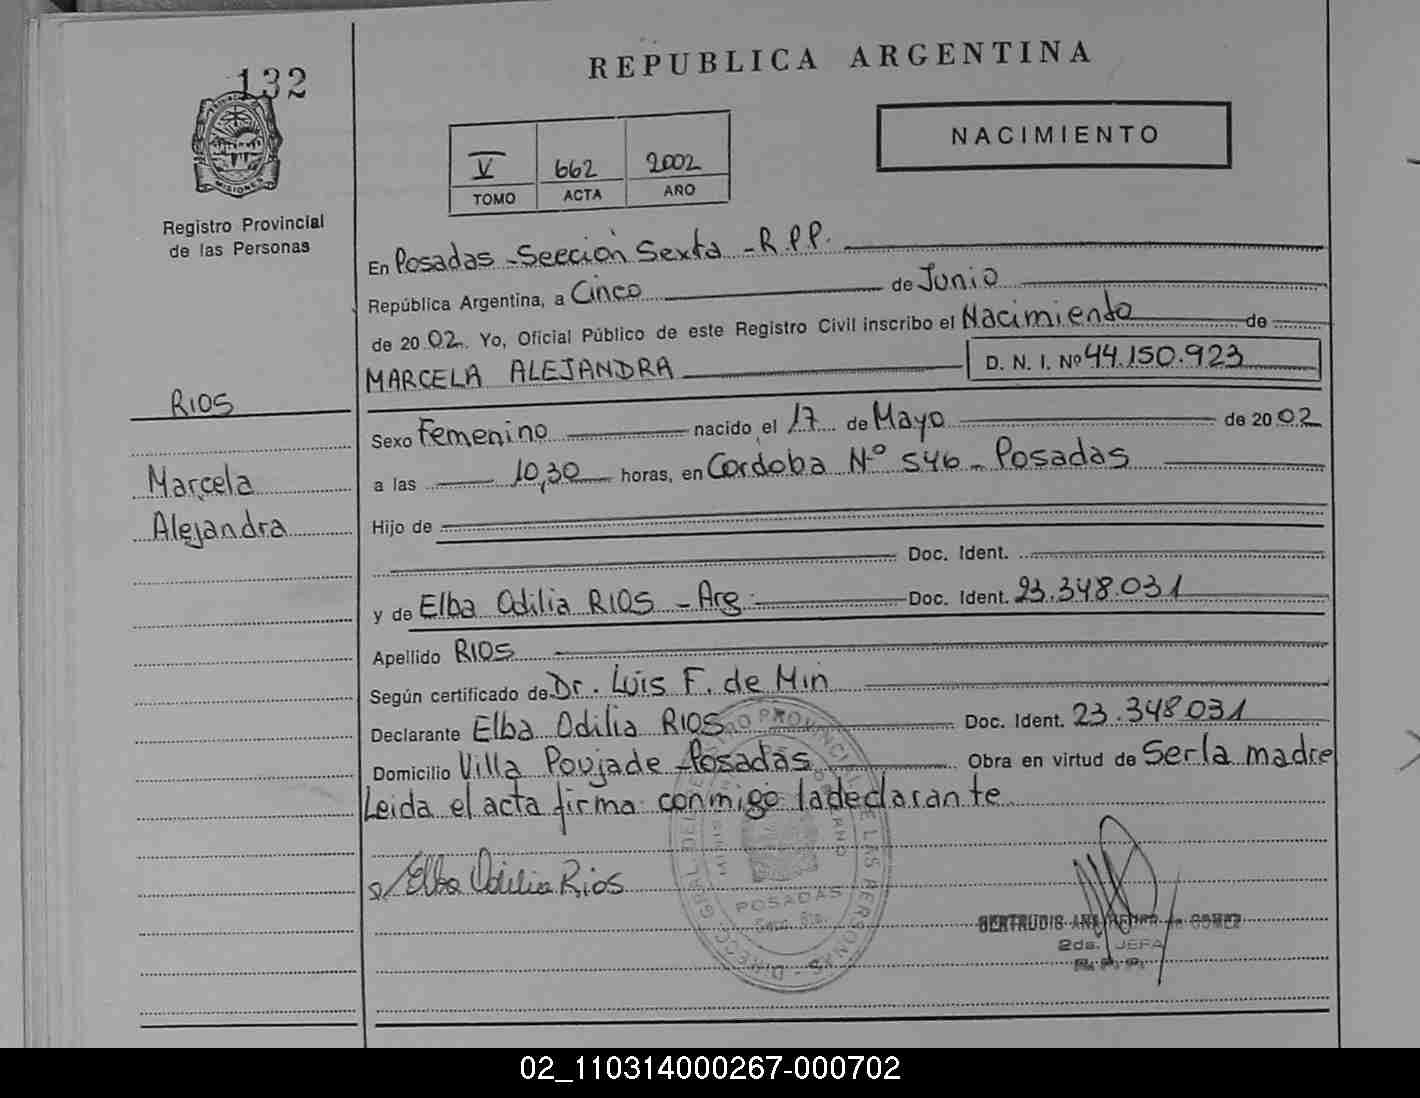 132
MISIONES
Registro Provincial
de las Personas
RIOS
Marcela
Alejandra
REPUBLICA ARGENTINA
V 662 2002
TOMO ACTA AÑO
NACIMIENTO
En Posadas - Sección Sexta - R.P.P.
República Argentina, a Cinco de Junio
de 2002. Yo, Oficial Público de este Registro Civil inscribo el Nacimiento de
MARCELA ALEJANDRA D. N. I. Nº 44.150.923
Sexo Femenino nacido el 17 de Mayo de 2002
a las 10,30 horas, en Cordoba Nº 546 - Posadas
Hijo de
Doc. Ident.
y de Elba Odilia RIOS - Arg. Doc. Ident. 23.348.031
Apellido RIOS
Según certificado de Dr. Luis F. de Min
Declarante Elba Odilia RIOS Doc. Ident. 23.348031
Domicilio Villa Poujade - Posadas Obra en virtud de Ser la madre
Leida el acta firma conmigo la declarante
Elba Odilia Rios
POSADAS
Secc. 6ta.
GERTRUDIS de GOMEZ
2da. JEFA
R. P. P.
02_110314000267-000702